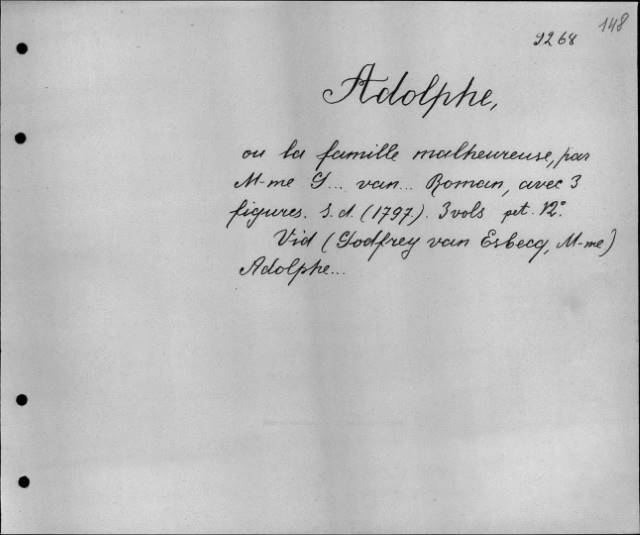 148
9268
Adolphe,
ou la famille malheureuse, par
M-me G... van... Roman, avec 3
figures. S.d. (1797). 3 vols pet. 12°.
Vid (Godfrey van Esbecq, M-me)
Adolphe...